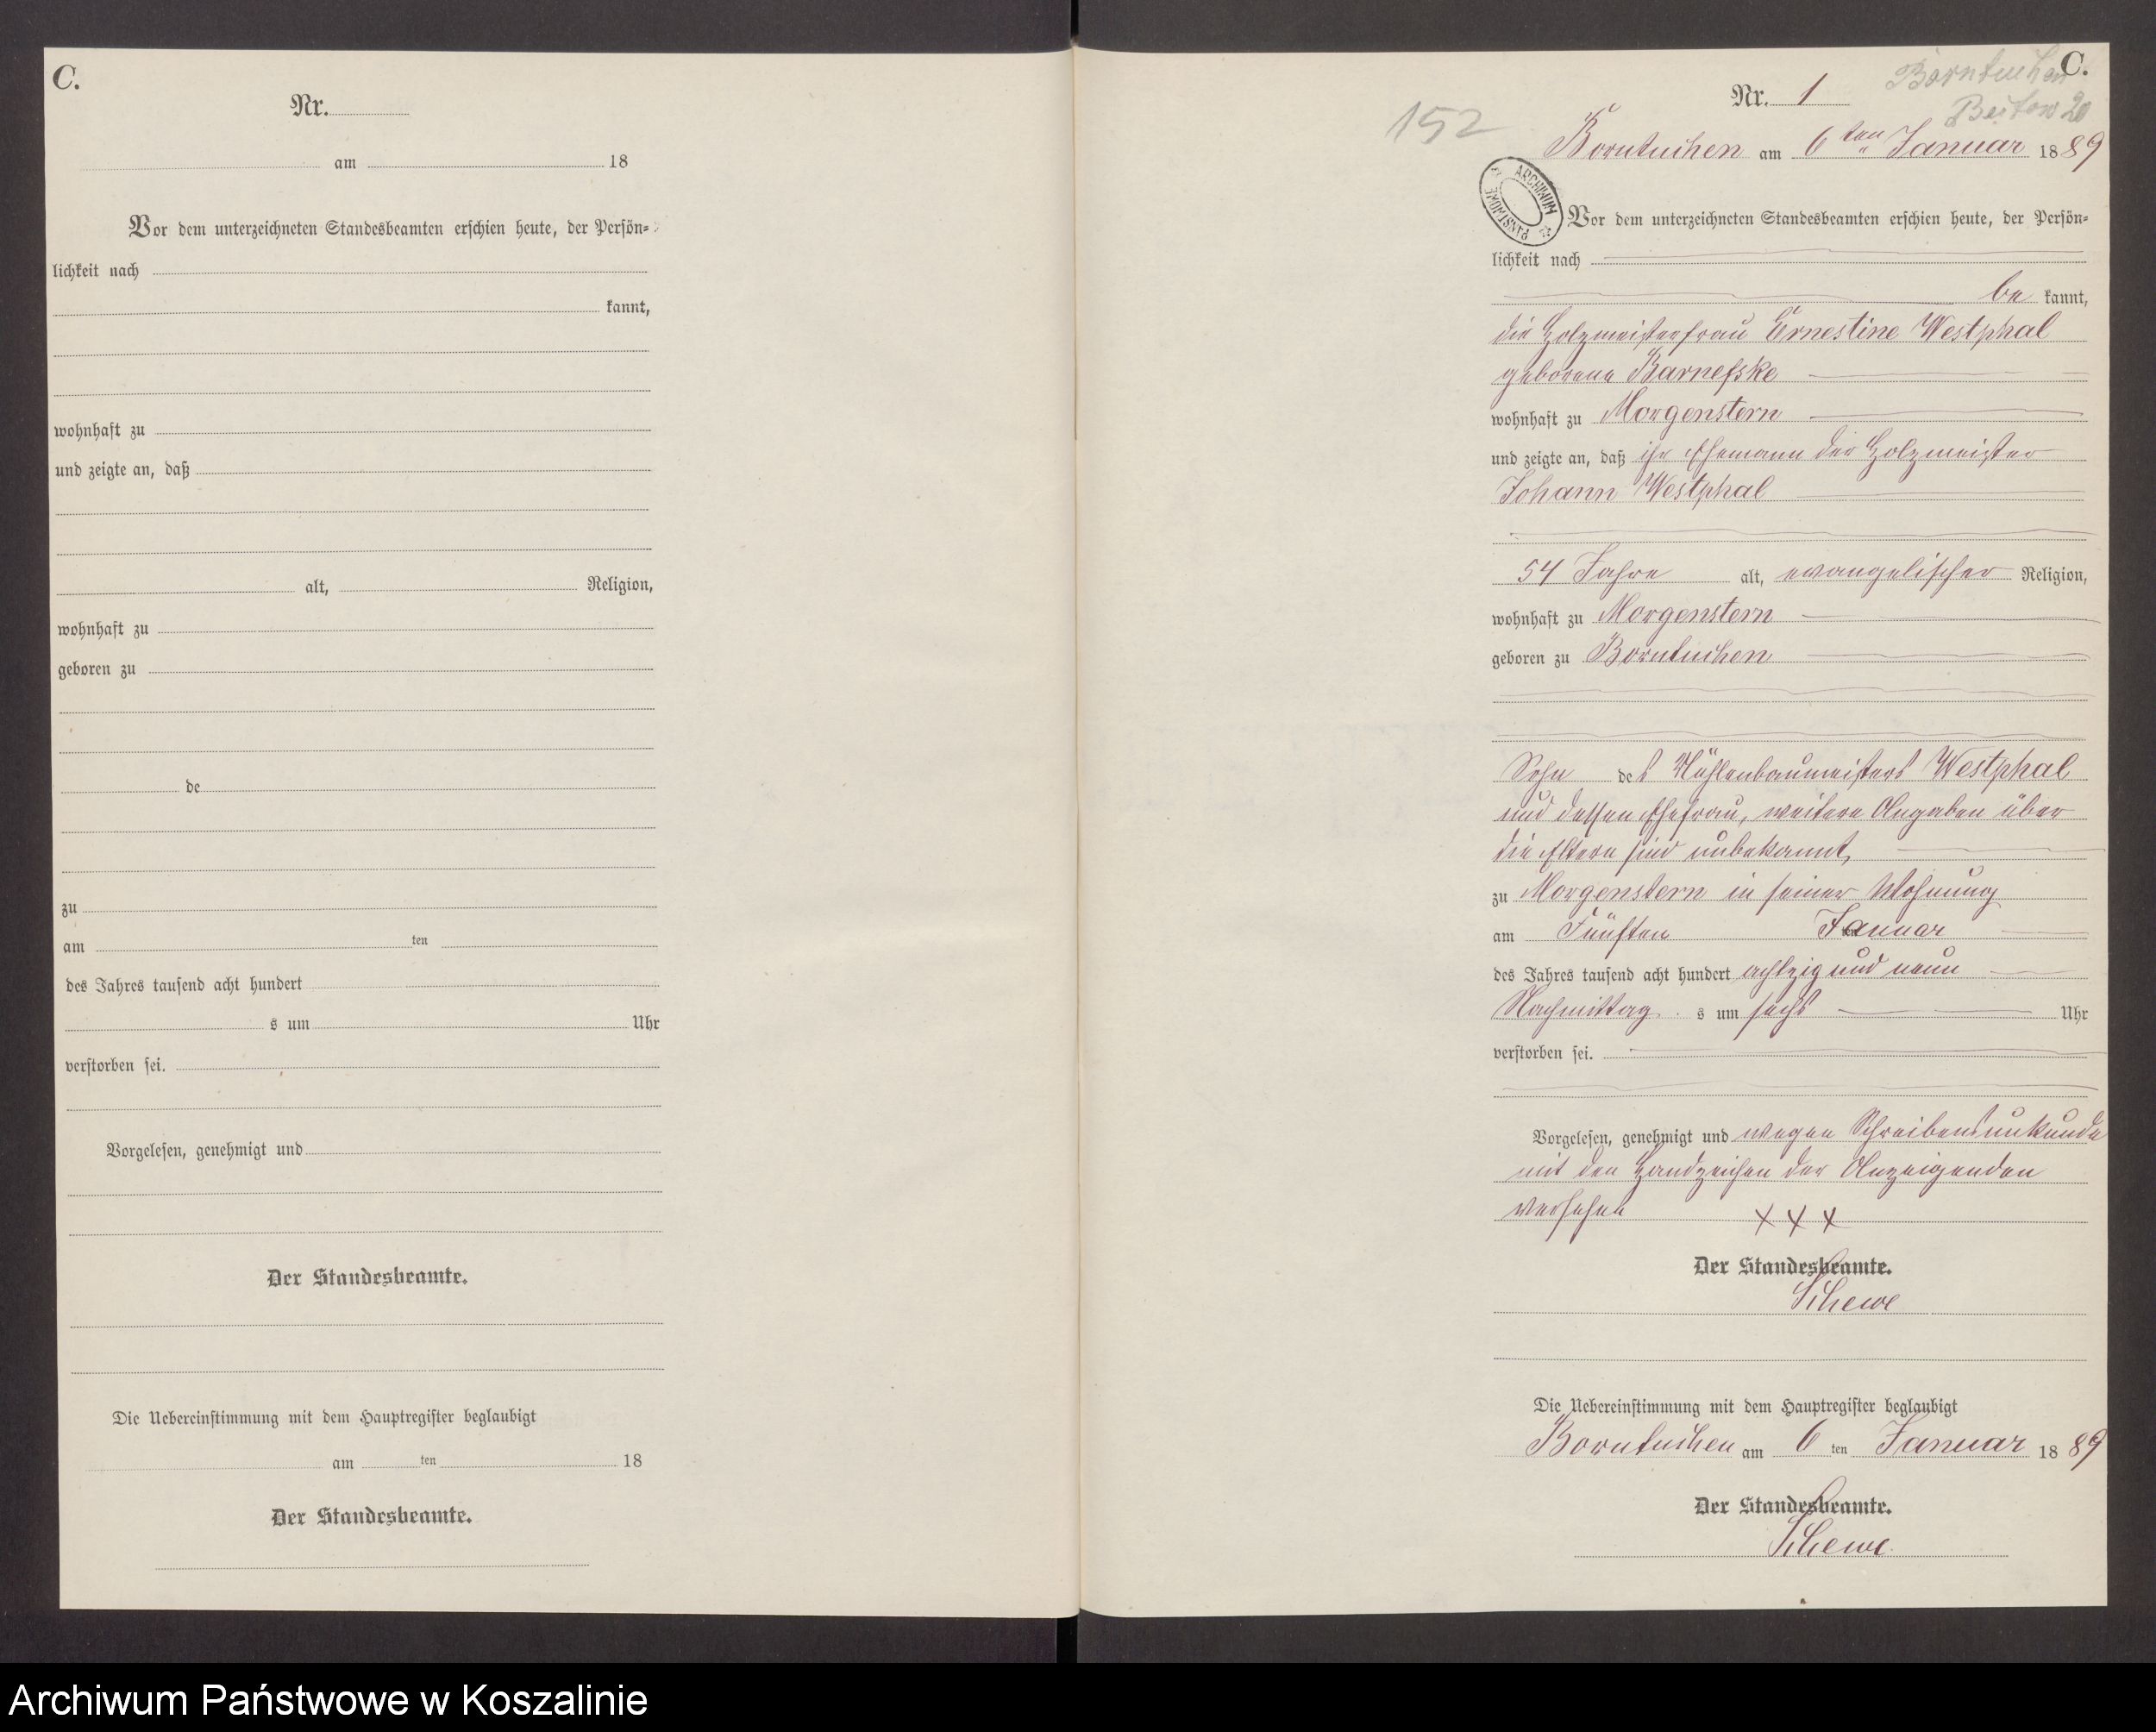 C.
Nr.
am 18
Vor dem unterzeichneten Standesbeamten erschien heute, der Persön-
lichkeit nach
kannt,
wohnhaft zu
und zeigte an, daß
alt, Religion,
wohnhaft zu
geboren zu
de
zu
am ten
des Jahres tausend acht hundert
s um Uhr
verstorben sei.
Vorgelesen, genehmigt und
Der Standesbeamte.
Die Uebereinstimmung mit dem Hauptregister beglaubigt
am ten 18
Der Standesbeamte.
C.
Borntuchen
20
152
Nr. 1
Borntuchen am 6ten Januar 1889
ARCHIWUM PAŃSTWOWE
Vor dem unterzeichneten Standesbeamten erschien heute, der Persön-
lichkeit nach
be kannt,
die Holzmeisterfrau Ernestine Westphal
geborene Barnefske
wohnhaft zu Morgenstern
und zeigte an, daß ihr Ehemann der Holzmeister
Johann Westphal
54 Jahre alt, evangelischer Religion,
wohnhaft zu Morgenstern
geboren zu Borntuchen
Sohn des Mühlenbaumeisters Westphal
und dessen Ehefrau, weitere Angaben über
die Eltern sind unbekannt,
zu Morgenstern in seiner Wohnung
am Fünften Januar
des Jahres tausend acht hundert achtzig und neun
Nachmittag s um sechs Uhr
verstorben sei.
Vorgelesen, genehmigt und wegen Schreibensunkunde
mit den Handzeichen der Anzeigenden
versehen
xxx
Der Standesbeamte.
Schewe
Die Uebereinstimmung mit dem Hauptregister beglaubigt
Borntuchen am 6 ten Januar 1889
Der Standesbeamte.
Schewe.
Archiwum Państwowe w Koszalinie